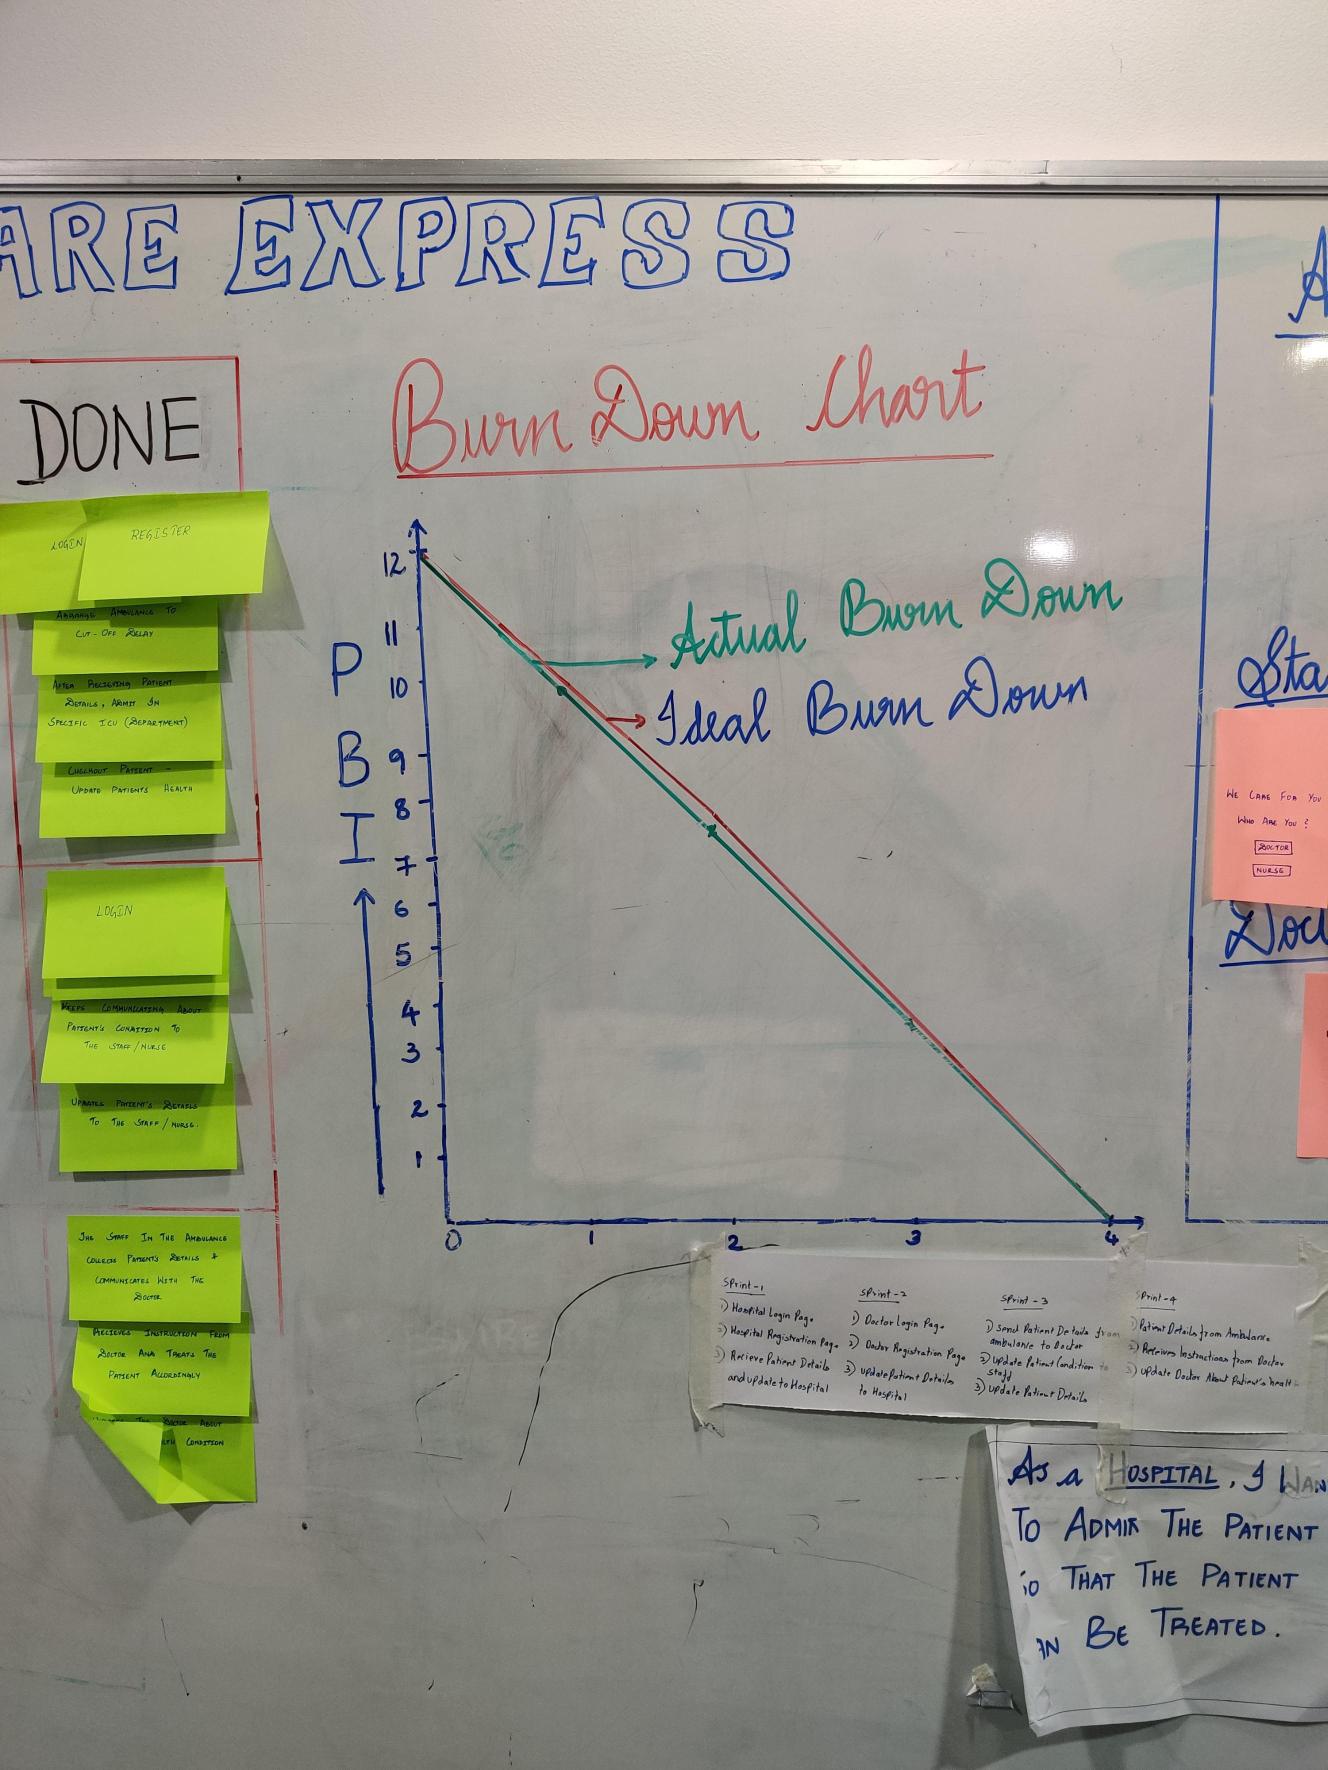 ARE EXPRESS
DONE
Burn Down Chart
LOGIN
REGISTER
ARRANGE AMBULANCE TO
CUT-OFF DELAY
AFTER RECIEVING PATIENT
DETAILS, ADMIT IN
SPECIFIC ICU (DEPARTMENT)
CHECKOUT PATIENT -
UPDATE PATIENTS HEALTH
LOGIN
KEEPS COMMUNICATING ABOUT
PATIENT'S CONDITION TO
THE STAFF/NURSE
UPDATES PATIENT'S DETAILS
TO THE STAFF/NURSE.
THE STAFF IN THE AMBULANCE
COLLECTS PATIENT'S DETAILS &
COMMUNICATES WITH THE
DOCTOR
RECIEVES INSTRUCTION FROM
DOCTOR AND TREATS THE
PATIENT ACCORDINGLY
THE DOCTOR ABOUT
CONDITION
PBI
12
11
10
9
8
7
6
5
4
3
2
1
0 1 2 3 4
Actual Burn Down
Ideal Burn Down
Sprint-1
1) Hospital Login Page
2) Hospital Registration Page
3) Recieve Patient Details
and update to Hospital
Sprint-2
1) Doctor Login Page
2) Doctor Registration Page
3) update Patient Details
to Hospital
Sprint-3
1) Send Patient Details from
ambulance to Doctor
2) update Patient Condition to
staff
3) update Patient Details
Sprint-4
1) Patient Details from Ambulance
2) Receives Instructions from Doctor
3) update Doctor About Patient's healt
As a HOSPITAL, I WAN
TO ADMIT THE PATIENT
THAT THE PATIENT
BE TREATED.
A
Sta
WE CARE FOR YOU
WHO ARE YOU?
DOCTOR
NURSE
Doc